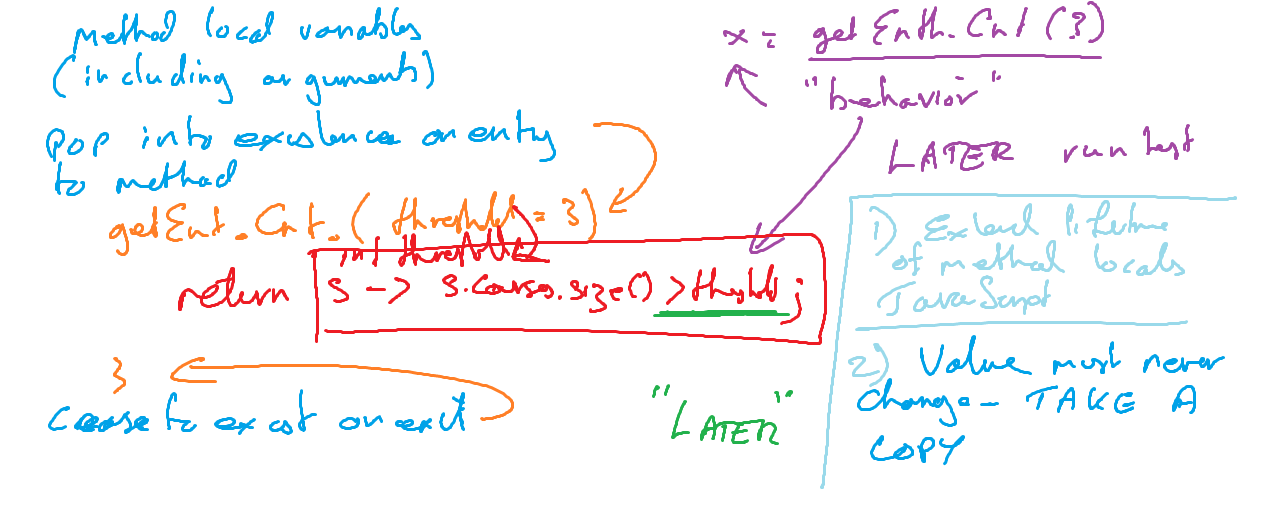 Method local variables
(including arguments)
pop into existence on entry
to method
getEnt.Cnt.( threshld = 3)
int threshld
return s -> s.courses.size() > threshld ;
}
cease to exist on exit
x = getEnth.Cnt (3)
"behavior"
LATER run test
"LATER"
1) Extend lifetime
of method locals
JavaScript
2) Value must never
change - TAKE A
COPY